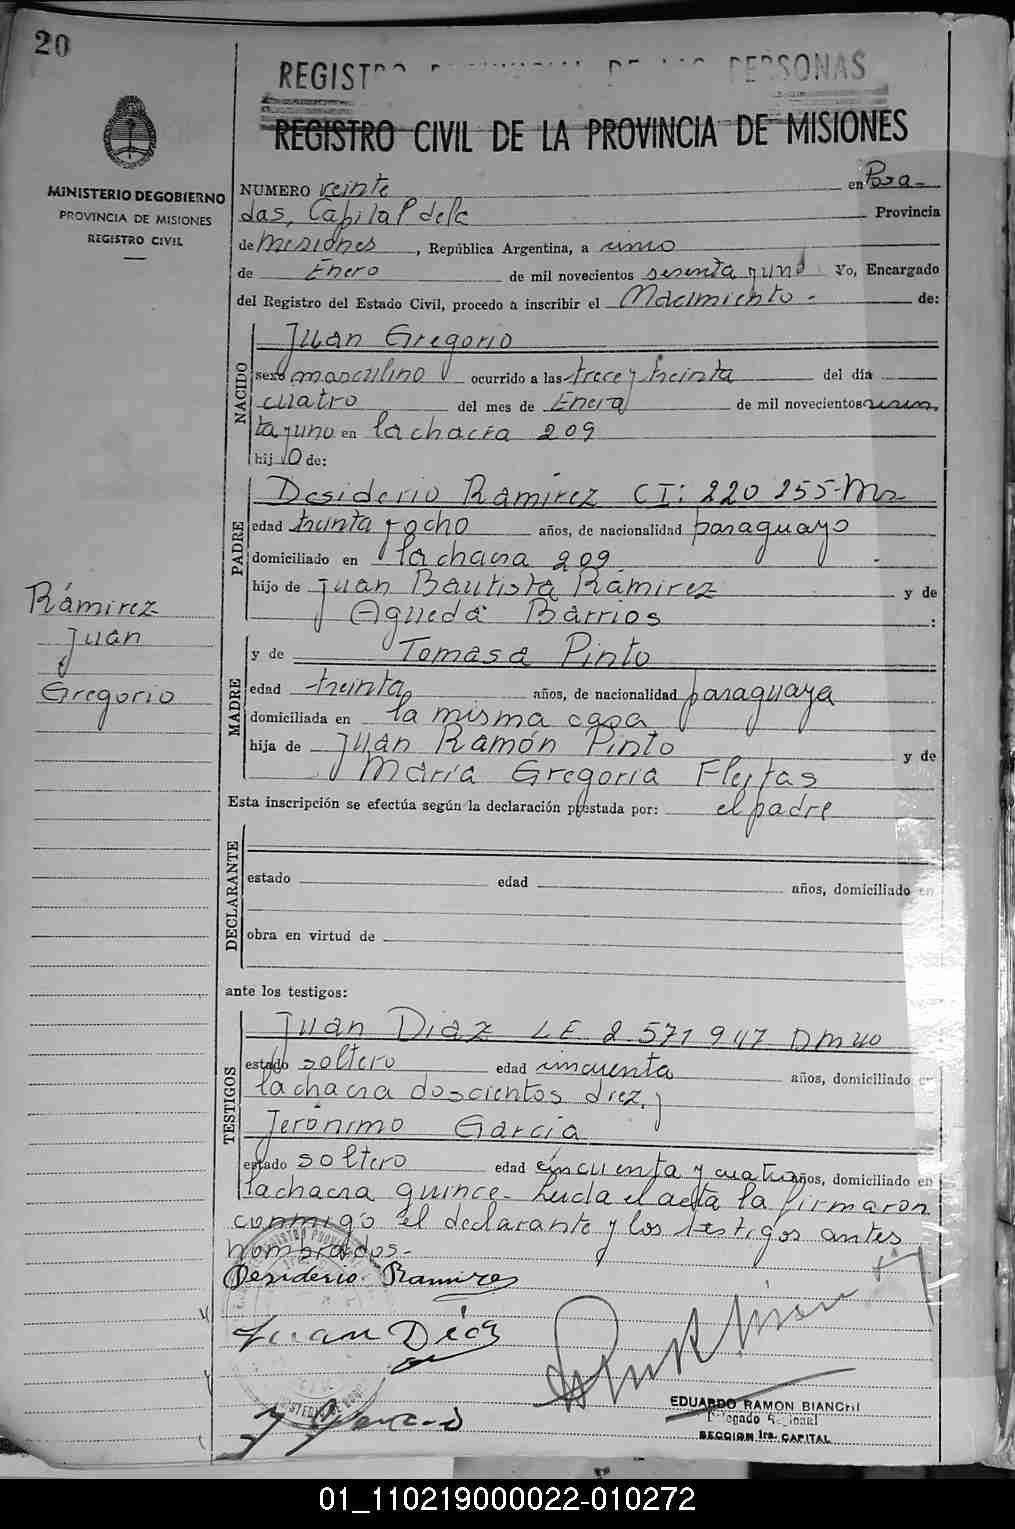 20
REGISTRO PROVINCIAL DE LAS PERSONAS
REGISTRO CIVIL DE LA PROVINCIA DE MISIONES
MINISTERIO DE GOBIERNO
PROVINCIA DE MISIONES
REGISTRO CIVIL
NUMERO veinte en Posa-
das, Capital de la Provincia
de Misiones, República Argentina, a cinco
de Enero de mil novecientos sesenta y uno Yo, Encargado
del Registro del Estado Civil, procedo a inscribir el Nacimiento - de:
NACIDO
Juan Gregorio
sexo masculino ocurrido a las trece y treinta del día
cuatro del mes de Enero de mil novecientos sesen
ta y uno en la chacra 209
hijo de:
PADRE
Desiderio Ramirez CI: 220 255-Mns
edad treinta y ocho años, de nacionalidad paraguayo
domiciliado en la chacra 209
hijo de Juan Bautista Ramirez y de
Agueda Barrios :
Rámirez
Juan
Gregorio
MADRE
y de Tomasa Pinto
edad treinta años, de nacionalidad paraguaya
domiciliada en la misma casa
hija de Juan Ramón Pinto y de
María Gregoria Fleytas
Esta inscripción se efectúa según la declaración prestada por: el padre
DECLARANTE
estado edad años, domiciliado en
obra en virtud de
ante los testigos:
TESTIGOS
Juan Diaz LE 2.571.947 DM
estado soltero edad cincuenta años, domiciliado en
la chacra doscientos diez, y
Jerónimo Garcia
estado soltero edad cincuenta y cuatro años, domiciliado en
la chacra quince- Leida el acta la firmaron
conmigo el declarante y los testigos antes
nombrados.-
Desiderio Ramires
Juan Diaz
J Garcia
EDUARDO RAMON BIANCHI
Delegado Regional
SECCION 1ra. CAPITAL
01_110219000022-010272